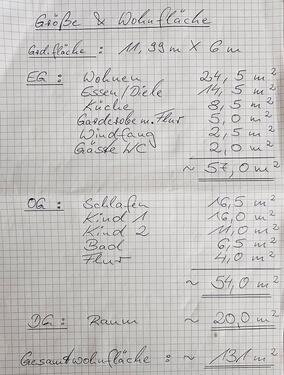 Größe & Wohnfläche
Grdfläche: 11,99 m x 6 m
EG: Wohnen 24,5 m²
Essen/Diele 14,5 m²
Küche 8,5 m²
Garderobe m. Flur 5,0 m²
Windfang 2,5 m²
Gäste WC 2,0 m²
~ 57,0 m²
OG: Schlafen 16,5 m²
Kind 1 16,0 m²
Kind 2 11,0 m²
Bad 6,5 m²
Flur 4,0 m²
~ 54,0 m²
DG: Raum ~ 20,0 m²
Gesamtwohnfläche: ~ 131 m²